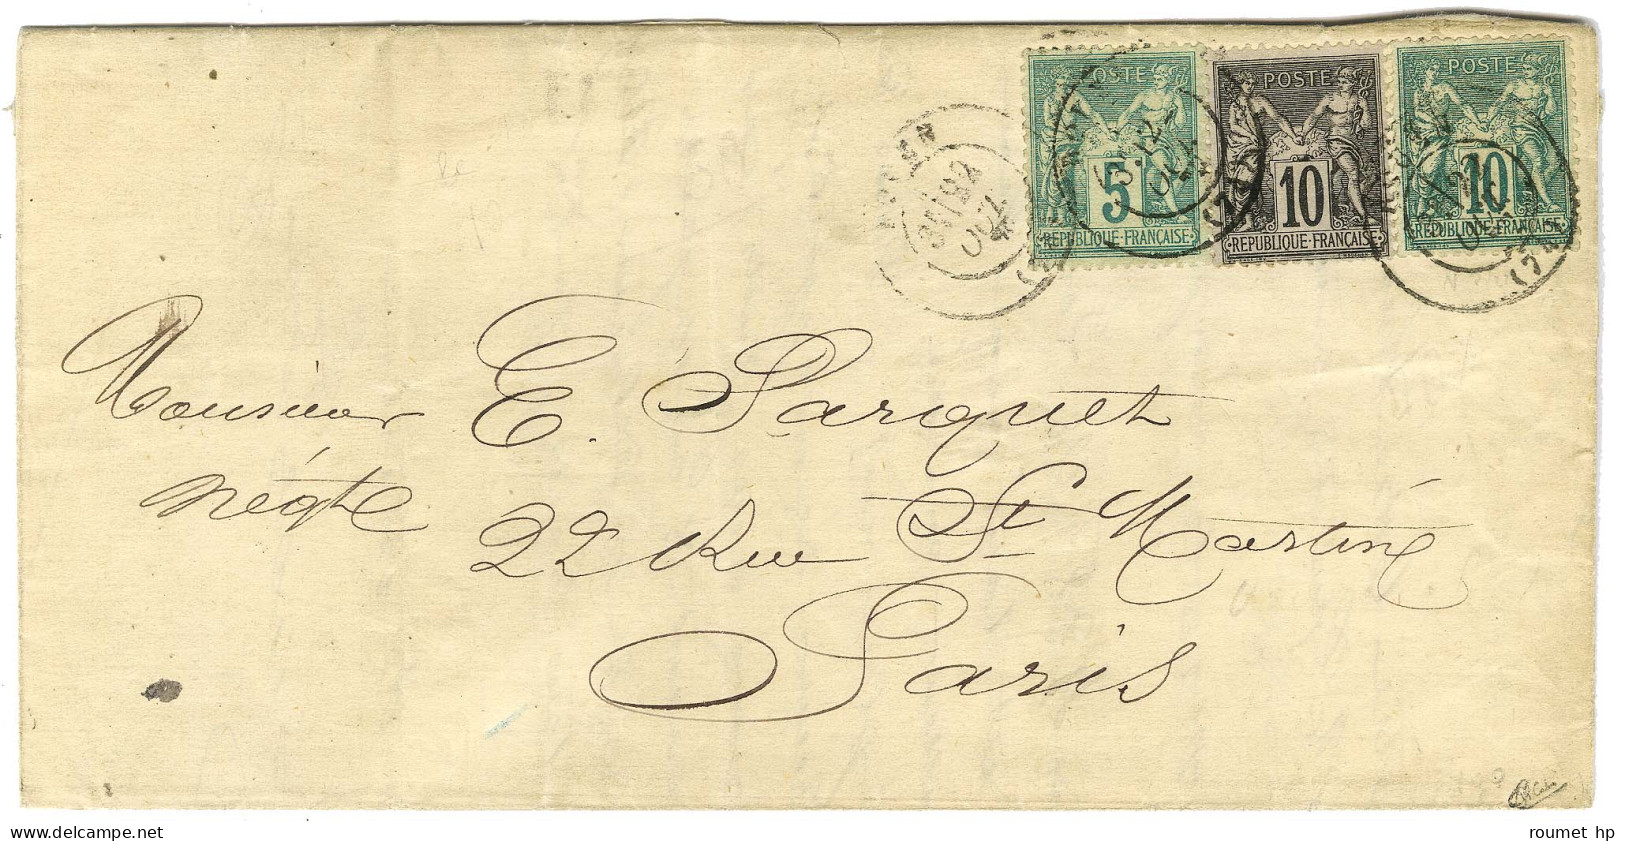 POSTE
5
REPUBLIQUE-FRANÇAISE
POSTE
10
REPUBLIQUE-FRANÇAISE
POSTE
10
REPUBLIQUE-FRANÇAISE
Monsieur E. Parquet
négte 22 Rue St Martin
Paris
delcampe.net
roumet hp